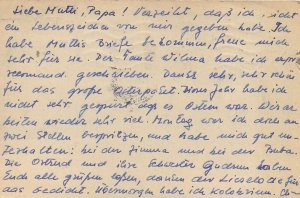 Liebe Mutti, Papa! Verzeiht, daß ich nicht
ein Lebenszeichen von mir gegeben habe. Ich
habe Muttis Briefe bekommen, freue mich
sehr für sie. Der Tante Wilma habe ich
geschrieben. Danke sehr, sehr schön
für das große Osterpaket. Dieses Jahr habe ich
nicht sehr gespürt, daß es Ostern war. Wir
wieder sehr viel. Montag war ich
zwei Stellen und habe mich gut
: bei der und bei der
Die Ortrud und ihre Schwester Gudrun
Ende alle grüßen lassen, danken der Lieselotte für
das Gedicht. Übermorgen habe ich Kolokvium.